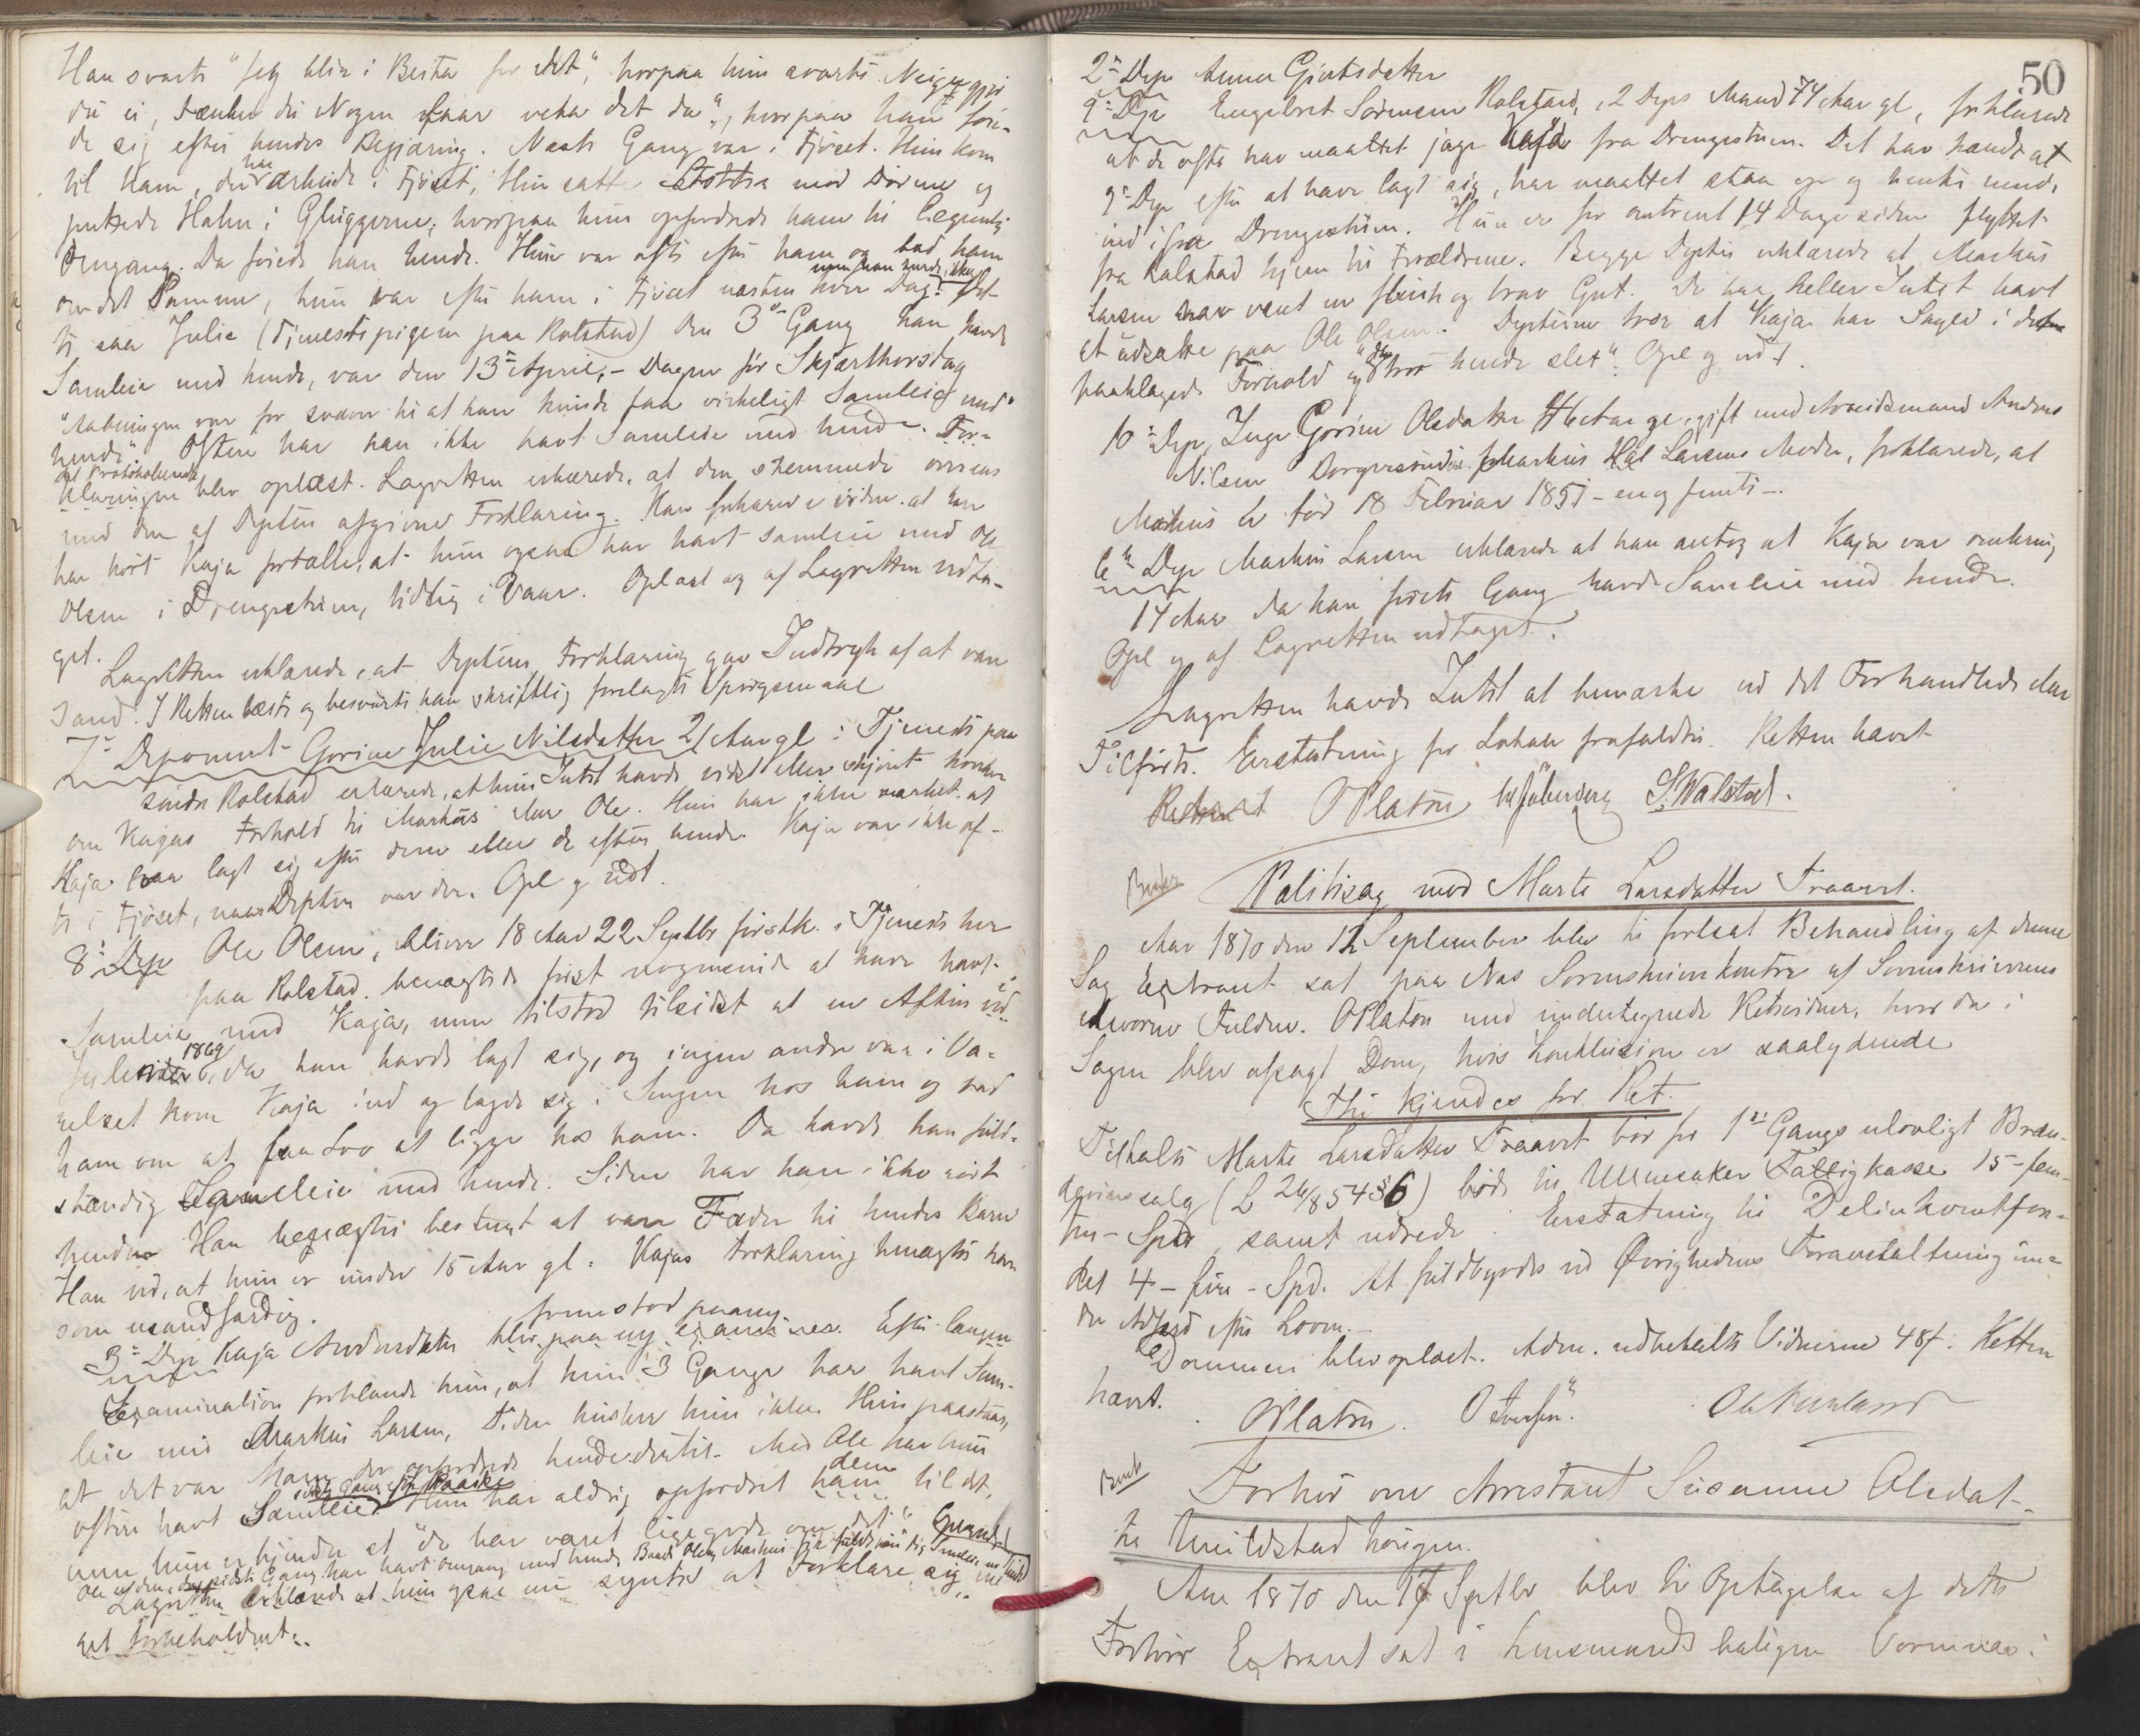 Han svarte "Jeg blir i Beita for det", hvorpaa hun svarte Neigu gjør
du ei, tænker du Nogen faar veta det da", hvorpaa han føie-
de sig efter hendes Begjæring. Næste Gang var i Fjøset. Hun kom
til ham, der han arbeide i Fjøset, Hun satte Støttra mod Dørene og
puttede Halm i Gluggerne, hvorpaa hun opfordrede ham til legemlig
Omgang. Da føiede han hende. Hun var ofte efter ham og bad ham
om det Samme, hun var efter ham i Fjøset næsten hver Dag. Det-
te saa Julie (Tjenestepigen paa Rolstad) Den 3die Gang han havde
Samleie med hende, var den 13de April, - Dagen før Skjærthorsdag
"Aabningen var for svær til at han kunde faa virkeligt Samleie med"
hende". Oftere har han ikke havt Samleie med hende. For-
det Protokollerede
klaringen blev oplæst. Lagretten erklærede, at den stemmede overens
med den af Deptus afgivne Forklaring. Han forklarede videre at han
har hørt Kaja fortælle, at hun ogsaa har havt samleie med Ole
Olsen i Drengestuen, tidlig i Vaar. Oplæst og af Lagretten vedta-
get.
Lagretten erklærede, at Deptus Forklaring gav Indtryk af at være
Sand. I Retten læste og besvarte han skriftlig forelagte Spørgsmaal
7de Deponent Gorine Julie Nilsdatter 21 Aar gl. i Tjeneste paa
søndre Rolstad erklærede, at hun Intet havde vidst eller skjønt hverken
om Kajas Forhold til Markus eller Ole. Hun har ikke mærket at
Kaja har lagt sig efter dem eller de efter hende. Kaja var ikke of-
te i Fjøset, naar Deptus var der. Opl og vedt.
8de Dep Ole Olsen, bliver 18 Aar 22 Septbr førstk. i Tjeneste her
paa Rolstad benægtede først nogensinde at have havt
Samleie med Kaja, men tilstod tilsidst at en Aften ved
Juletider 1869, da han havde lagt sig, og ingen andre var i Væ-
relset kom Kaja ind og lagde sig i Sengen hos ham og bad
ham om at faa Lov at ligge hos ham. Da havde han fuld-
stændig Samleie med hende. Siden har han ikke rørt
hende. Han benægter bestemt at være Fader til hendes Barn
Han ved, at hun er under 15 Aar gl. Kajas Forklaring benægter han
som usandfærdig.
fremstod paany.
3de Dep Kaja Andersdatter blev paa ny examineret. Efter længere
Examination forklarede hun, at hun 3 Gange har havt Sam-
leie med Markus Larsen, Tiden husker hun ikke. Hun paastaar,
at det var ham der opfordrede hende dertil. Med Ole har hun
oftere havt Samleie sidste Gang efter Paaske. Hun har aldrig opfordret dem til det,
men hun erkjender at "de har været ligegode om det".
Ole er den, der sidste Gang har havt Omgang med hende. Baade Ole og Markus
Lagretten erklærede at hun ogsaa nu syntes at Forklare sig med
get forbeholdent.
50
2de Dep Anne Gjertsdatter
9de Dep Engebret Sørensen Rolstad, 2 Deps Mand 74 Aar gl, forklarede
at de ofte har maattet jage Kaja fra Drengestuen. Det har hændt at
9de Dep efter at have lagt sig, har maattet staa op og hente hende
ind ifra Drengestuen. Hun er for omtrent 14 Dage siden flyttet
fra Rolstad hjem til Forældrene. Begge Deptes erklærede at Markus
Larsen har været en flink og brav Gut. De har heller Intet havt
at udsætte paa Ole Olsen. Depterne tror at Kaja har Skyld i dette
paaklagede Forhold og "de tror hende slet". Opl og vedt.
10de Dep, Inge Gorine Olsdatter 46 Aar gl. gift med Arbeidsmand Anders
Nilsen Dorgerseie, Markus Larsens Moder, forklarede, at
Markus er født 18 Februar 1851 - en og femti -.
6te Dep Markus Larsen erklærede at han antog at Kaja var omkring
14 Aar da han første Gang havde Samleie med hende.
Opl og af Lagretten vedtaget.
Lagretten havde Intet at bemærke ved det Forhandlede eller
Tilførte. Erstatning for Lokale frafaldtes. Retten hævet
OPlatou S. Walstad.
Politisag mod Marte Larsdatter Traavet.
Aar 1870 den 12 September blev til fortsat Behandling af denne
Sag Extraret sat paa Næs Sorenskriverkontor af Sorenskriverens
edsvorne Fuldm. OPlatou med undertegnede Retsvidner, hvor da i
Sagen blev afsagt Dom, hvis Konklusion er saalydende
Thi kjendes for Ret.
Tiltalte Marte Larsdatter Traavet bør for 1ste Gangs ulovligt Bræn-
devinssalg (L 26/8 54 § 6) bøde til Ullensaker Fattigkasse 15 - fem-
ten - Spd, samt udrede i Erstatning til Delinkventfon-
det 4 - fire - Spd. At fuldbyrdes ved Øvrighedens Foranstaltning un-
der Adfærd efter Loven. -
Dommen blev oplæst. Adm. udbetalte Vidnerne 48 f. Retten
hævet.
OPlatou. O Iversen.
Forhør over Arrestant Susanne Olsdat-
ter Uvildstad hørigen.
Aar 1870 den 17 Septbr blev til Optagelse af dette
Forhør Extraret sat i Lensmandsboligen Vormnæs i